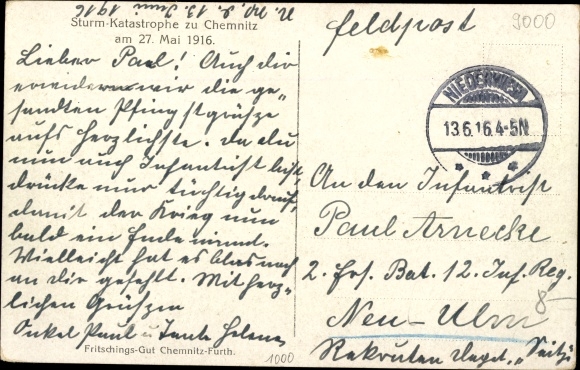 N. W. d. 13. Juni 1916
Sturm-Katastrophe zu Chemnitz
am 27. Mai 1916.
Lieber Paul! Auch dir
erwidern wir die ge-
sandten Pfingstgrüsze
aufs herzlichste. Da du
nun auch Infanterist bist,
drücke nur tüchtig drauf,
damit der Krieg nun
bald ein Ende nimmt.
Vielleicht hat es blos noch
an dir gefehlt. Mit herz-
lichen Grüszen
Onkel Paul u. Tante Helene
Fritschings-Gut Chemnitz-Furth.
1000
feldpost
9000
13.6.16.4-5N
An den Infanterist
Paul Arnecke
2. Ers. Bat. 12. Inf. Reg.
8-
Neu-Ulm
Rekruten Depot, „Seitz"